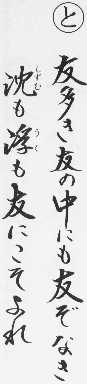 と
友多き友の中にも友ぞなき
沈も浮も友にこそよれ
しずむ
うく